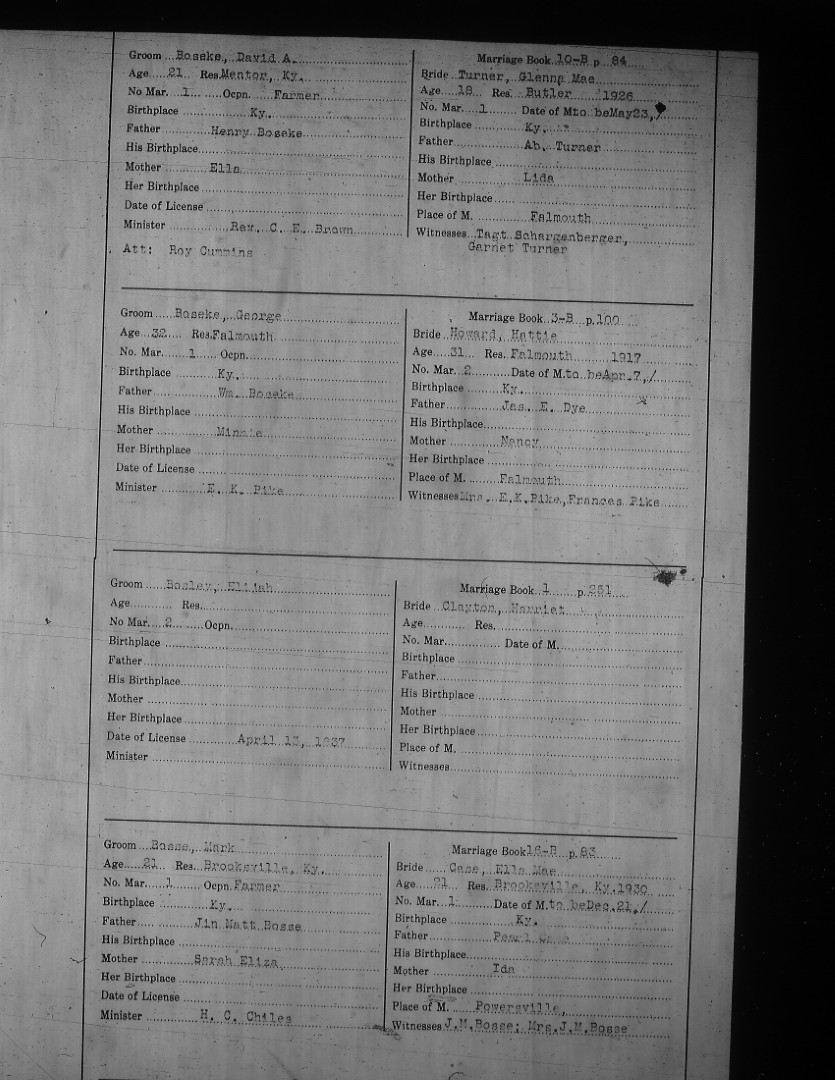 Groom Boseke, David A.
Age 21 Res. Mentor, Ky.
No Mar. 1 Ocpn. Farmer
Birthplace Ky.
Father Henry Boseke
His Birthplace
Mother Ella
Her Birthplace
Date of License
Minister Rev. C. E. Brown
Att: Roy Cummins
Marriage Book 10-B p. 84
Bride Turner, Glenna Mae
Age 18 Res. Butler 1926
No. Mar. 1 Date of M. to be May 23,
Birthplace Ky.
Father Ab. Turner
His Birthplace
Mother Lida
Her Birthplace
Place of M. Falmouth
Witnesses Tagt Schargenberger,
Garnet Turner
Groom Boseke, George
Age 32 Res. Falmouth
No. Mar. 1 Ocpn.
Birthplace Ky.
Father Wm. Boseke
His Birthplace
Mother Minnie
Her Birthplace
Date of License
Minister E. K. Pike
Marriage Book 3-B p. 100
Bride Howard, Hattie
Age 31 Res. Falmouth 1917
No. Mar. 2 Date of M. to be Apr. 7, /
Birthplace Ky.
Father Jas. E. Dye
His Birthplace
Mother Nancy
Her Birthplace
Place of M. Falmouth
Witnesses Mrs. E.K.Pike, Frances Pike
Groom Bosley, Elijah
Age Res.
No Mar. 2 Ocpn.
Birthplace
Father
His Birthplace
Mother
Her Birthplace
Date of License April 13, 1837
Minister
Marriage Book 1 p. 251
Bride Clayton, Harriet
Age Res.
No. Mar. Date of M.
Birthplace
Father
His Birthplace
Mother
Her Birthplace
Place of M.
Witnesses
Groom Bosse, Mark
Age 21 Res. Brooksville, Ky.
No. Mar. 1 Ocpn. Farmer
Birthplace Ky.
Father Jin Matt Bosse
His Birthplace
Mother Sarah Eliza
Her Birthplace
Date of License
Minister H. C. Chiles
Marriage Book 16-B p. 83
Bride Case, Ella Mae
Age 21 Res. Brooksville, Ky. 1930
No. Mar. 1 Date of M. to be Dec. 21, /
Birthplace Ky.
Father Pearl Case
His Birthplace
Mother Ida
Her Birthplace
Place of M. Powersville,
Witnesses J.M.Bosse; Mrs.J.M.Bosse